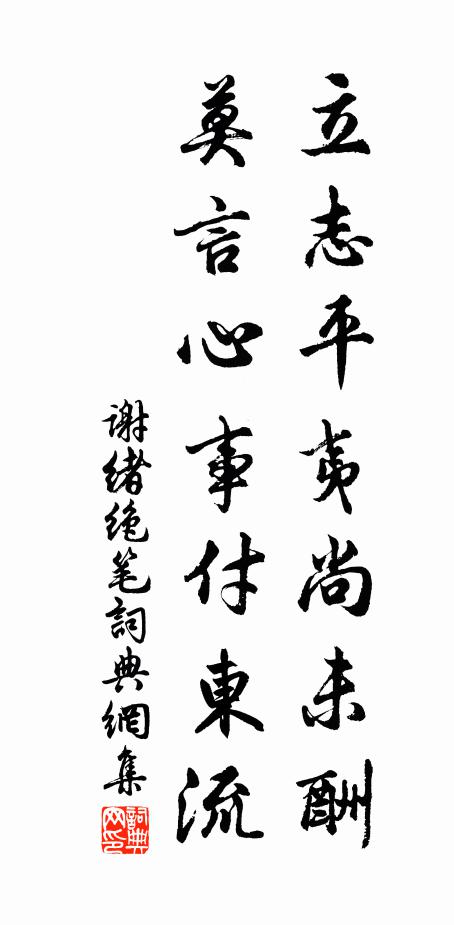 立志平夷尚未酬
莫言心事付東流
谢緒绝笔詞典網集
詞典网印